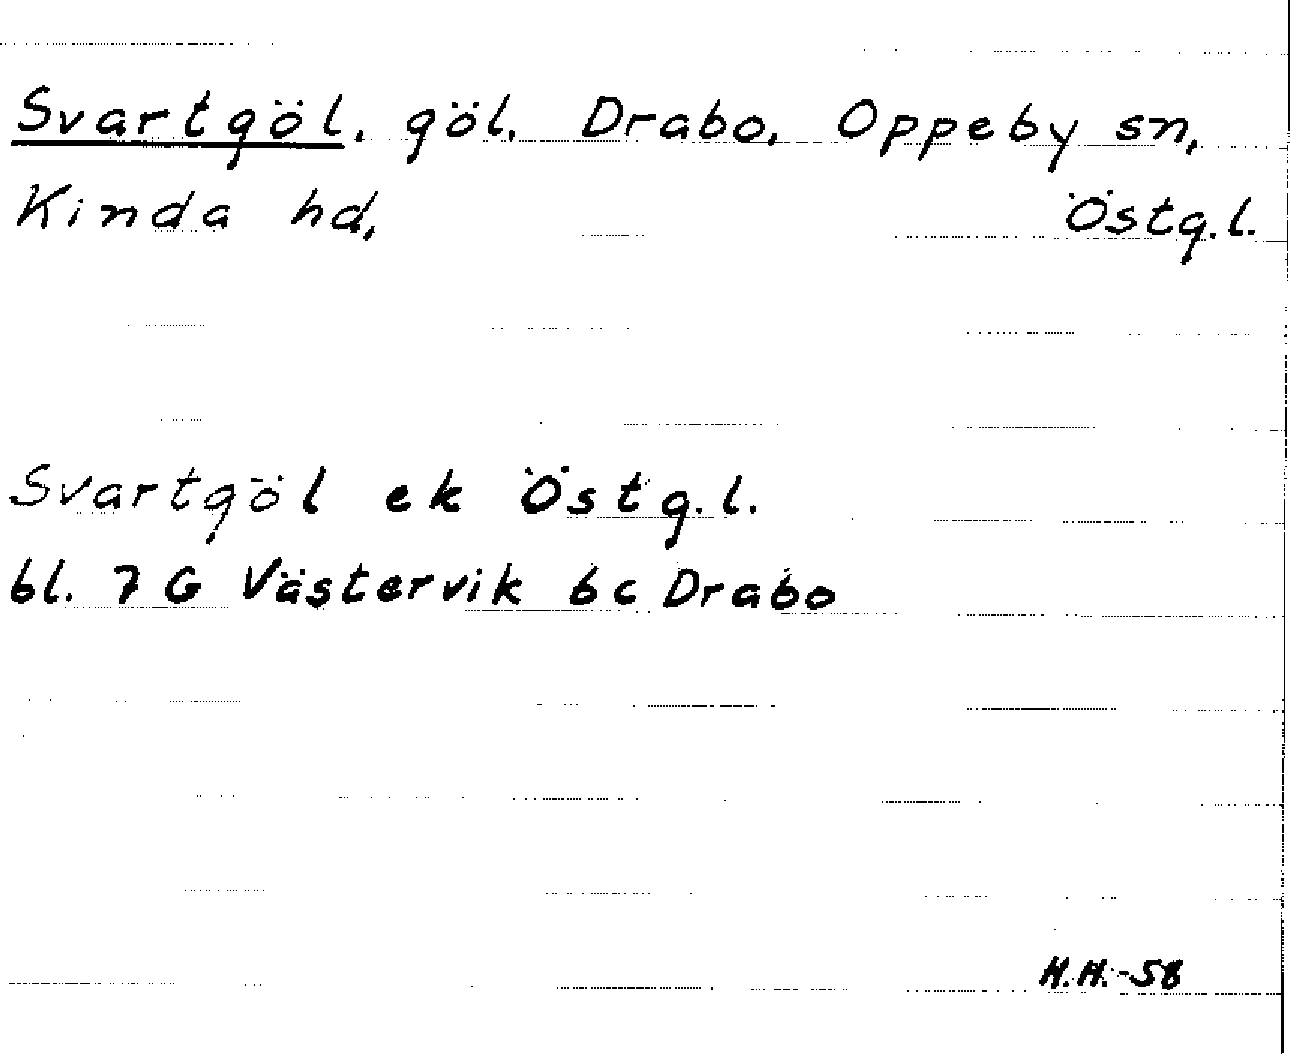 Svartgöl, göl, Drabo, Oppeby sn,
Kinda hd, Östg.l.
Svartgöl ek Östg.l.
bl. 7 G Västervik 6 c Drabo
H.H.-58